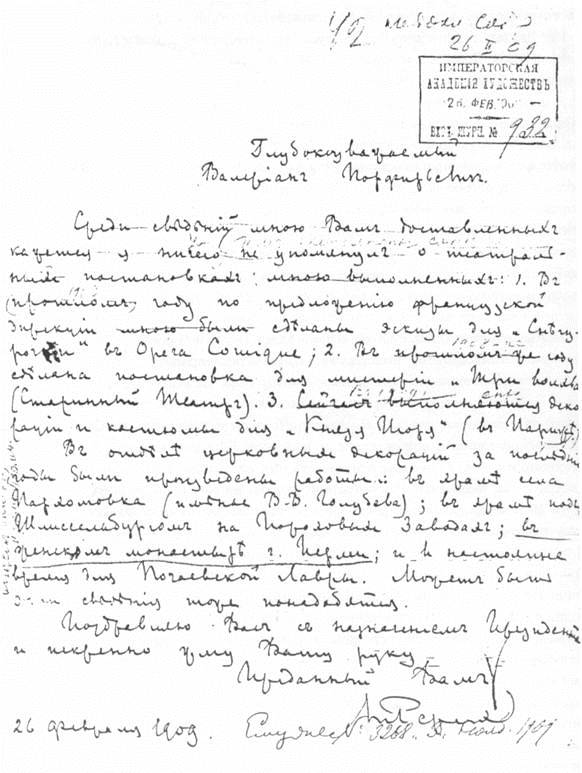 26 II 09
ИМПЕРАТОРСКАЯ
АКАДЕМІЯ ХУДОЖЕСТВЪ
26. ФЕВ.
ВХОД. ЖУРН. № 932
Глубокоуважаемый
Валеріанъ Порфирьевичъ.
Среди свѣдѣній мною Вамъ доставленныхъ
кажется я ничего не упомянулъ о театраль-
ныхъ постановкахъ мною выполненныхъ: 1. Въ
прошломъ году по предложенію французской
Дирекціи мною были сдѣланы эскизы для „Снѣгу-
рочки“ въ Opéra Comique; 2. Въ прошломъ же году
сдѣлана постановка для мистеріи „Три волхва“
(Старинный Театръ). 3. Сейчасъ выполняются деко-
раціи и костюмы для „Князя Игоря“ (въ Парижѣ)
Въ отдѣлѣ церковныхъ декорацій за послѣдніе
годы были произведены работы: въ храмѣ села
Пархомовка (имѣніе В.В. Голубева); въ храмѣ подъ
Шлиссельбургомъ на Пороховыхъ Заводахъ; въ
женскомъ монастырѣ г. Перми; и въ настоящее
время для Почаевской Лавры. Можетъ быть
эти свѣдѣнія тоже понадобятся.
Поздравляю Васъ съ назначеніемъ Президента
и искренно жму Вашу руку
Преданный Вамъ
26 февраля 1909.
3268
1909